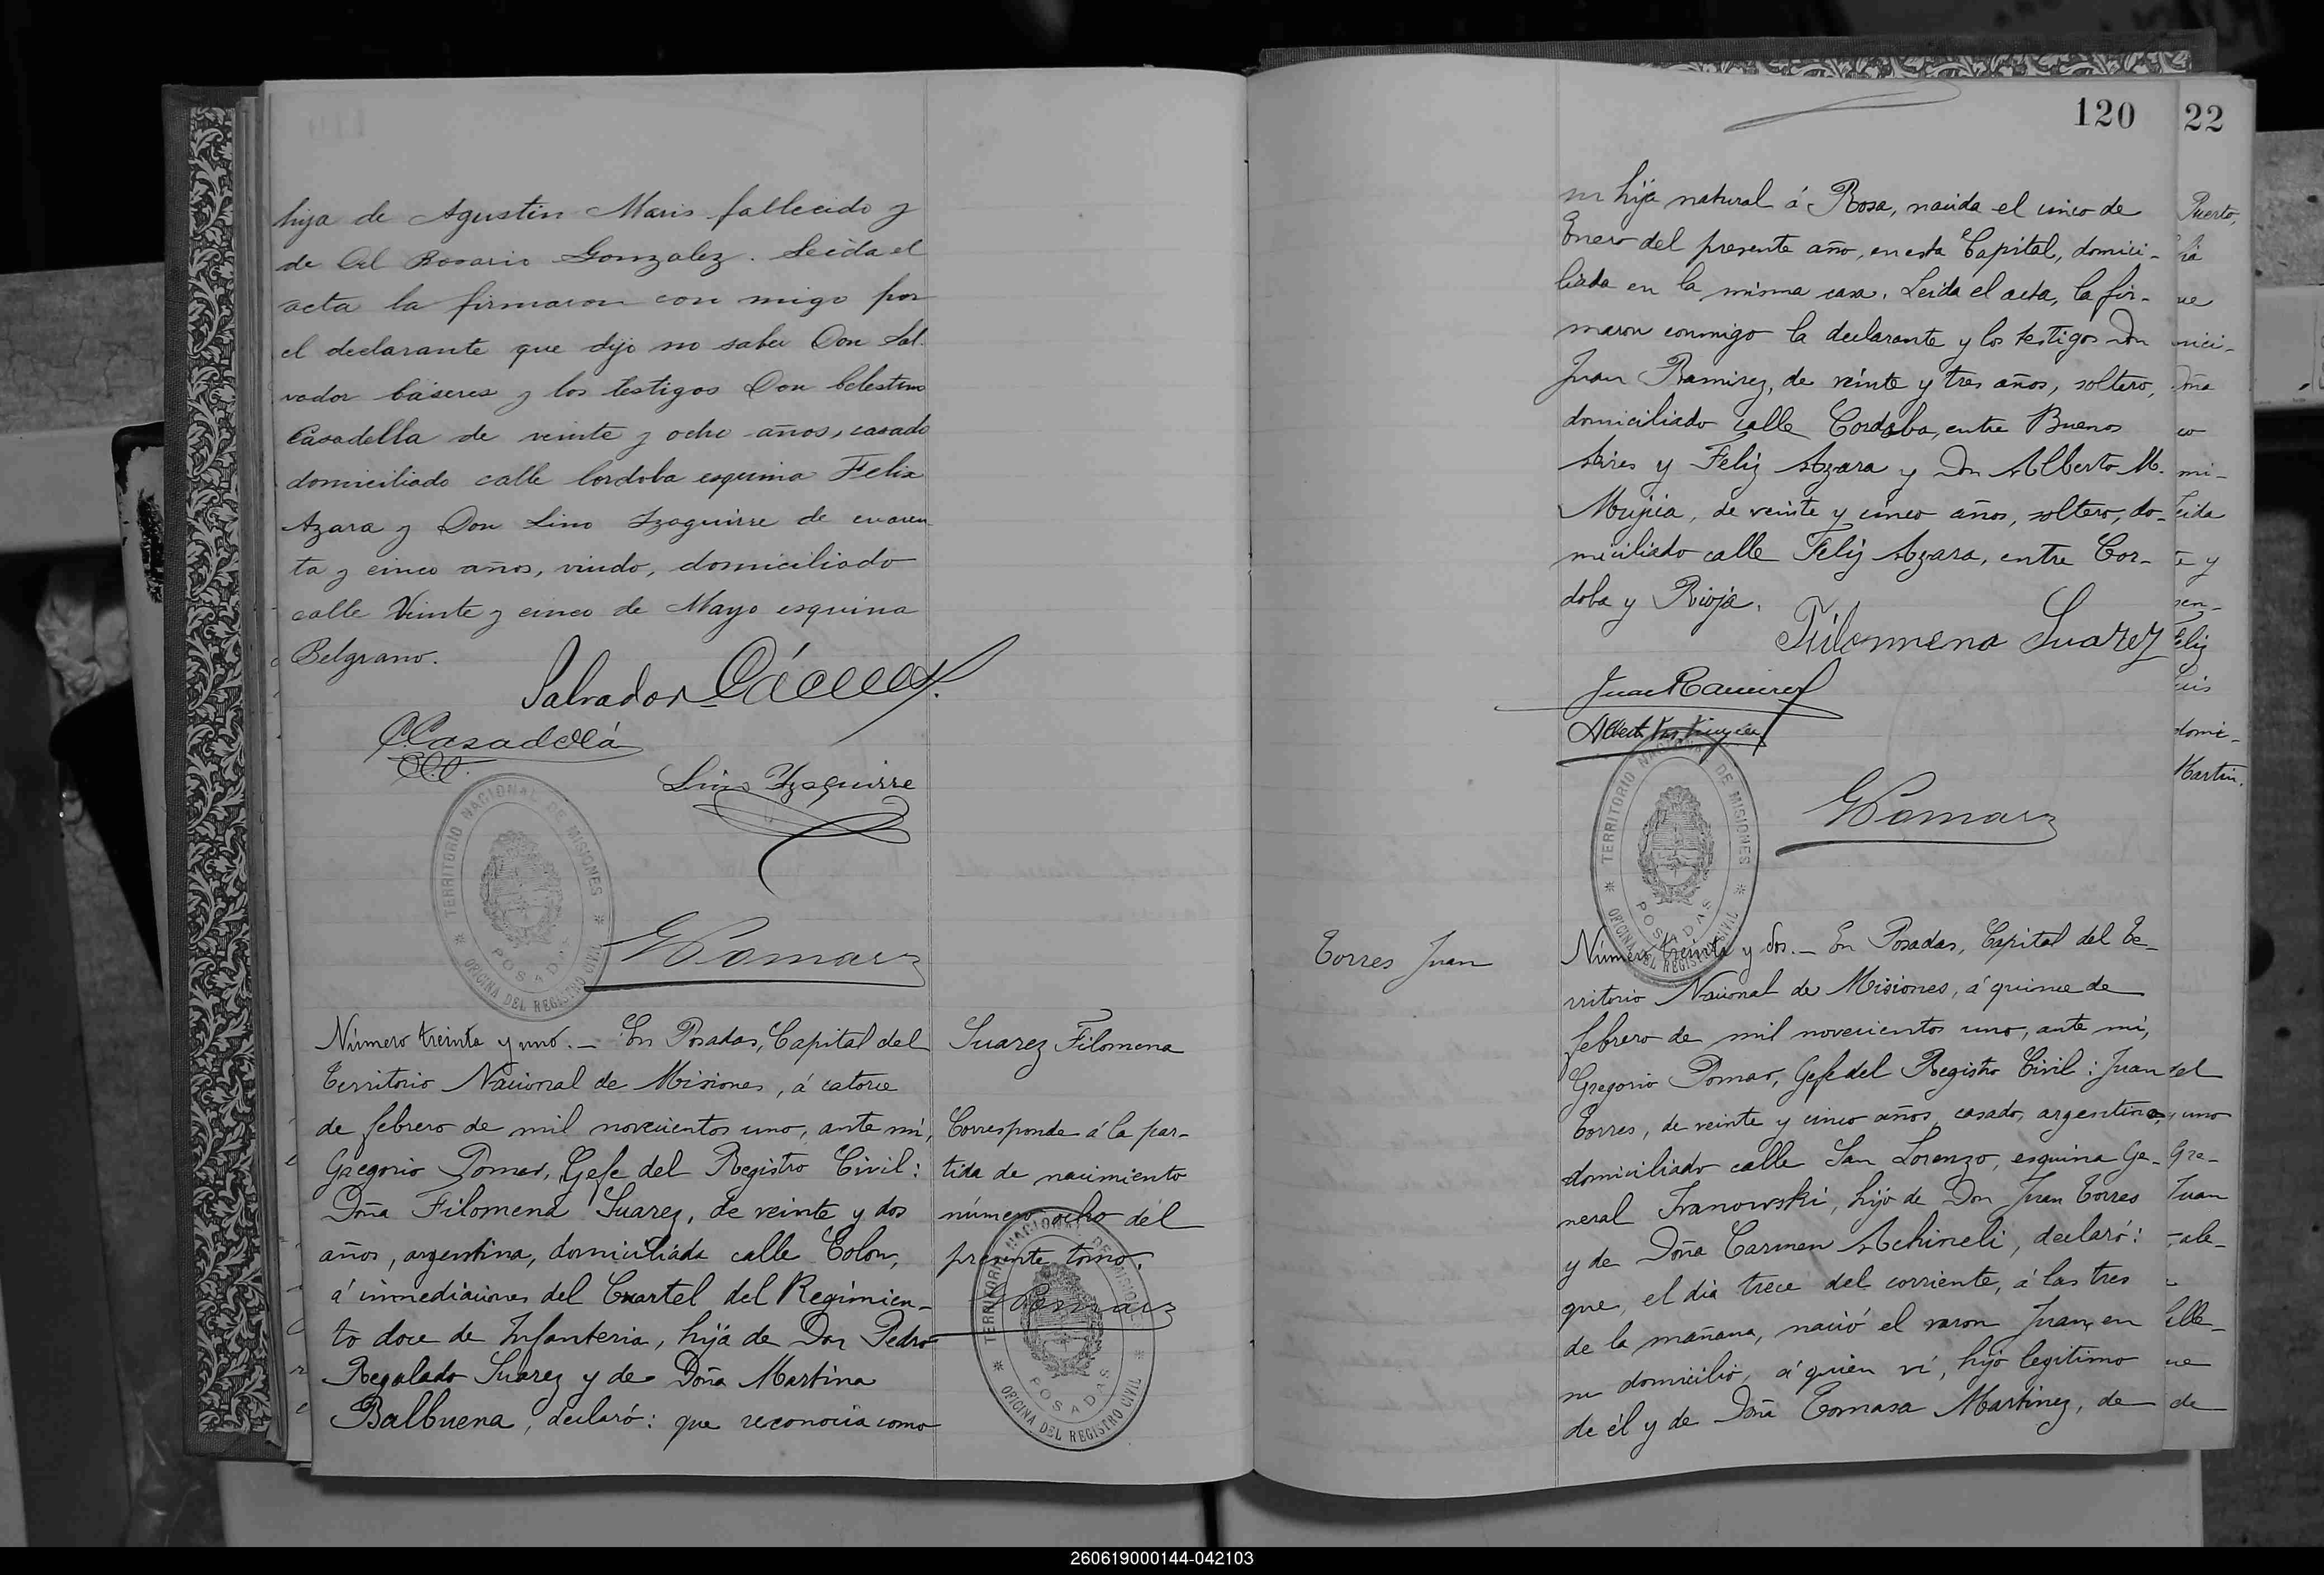 hija de Agustin Maris fallecido y
de Del Rosario Gonzalez. Leida el
acta la firmaron con migo por
el declarante que dijo no saber Don Sal-
vador Cáseres y los testigos Don Celestino
Casadella de veinte y ocho años, casado
domiciliado calle Cordoba esquina Felix
Azara y Don Lino Yzaguirre de cuaren
ta y cinco años, viudo, domiciliado
calle Veinte y cinco de Mayo esquina
Belgrano.
Salvador
C. Casadellá
Lino Yzaguirre
TERRITORIO NACIONAL DE MISIONES
POSADAS
OFICINA DEL REGISTRO CIVIL
GPomar
Número treinta y uno.— En Posadas, Capital del
Territorio Nacional de Misiones, á catorce
de febrero de mil novecientos uno, ante mí,
Gregorio Pomar, Gefe del Registro Civil:
Doña Filomena Suarez, de veinte y dos
años, argentina, domiciliada calle Colon,
á inmediaciones del Cuartel del Regimien-
to doce de Infanteria, hija de Don Pedro
Regalado Suarez y de Doña Martina
Balbuena, declaró: que reconocia como
Suarez Filomena
Corresponde á la par-
tida de nacimiento
número ocho del
presente tomo.
GPomar
TERRITORIO NACIONAL DE MISIONES
POSADAS
OFICINA DEL REGISTRO CIVIL
120
su hija natural á Rosa, nacida el cinco de
Enero del presente año, en esta Capital, domici-
liada en la misma casa. Leida el acta, la fir-
maron conmigo la declarante y los testigos Don
Juan Ramirez, de veinte y tres años, soltero,
domiciliado calle Cordoba, entre Buenos
Aires y Feliz Azara y Don Alberto M.
Mujica, de veinte y cinco años, soltero, do-
miciliado calle Feliz Azara, entre Cor-
doba y Rioja.
Filomena Suarez
Juan Ramirez
TERRITORIO NACIONAL DE MISIONES
POSADAS
OFICINA DEL REGISTRO CIVIL
GPomar
Torres Juan
Número treinta y dos.— En Posadas, Capital del Te-
rritorio Nacional de Misiones, á quince de
febrero de mil novecientos uno, ante mí,
Gregorio Pomar, Gefe del Registro Civil: Juan
Torres, de veinte y cinco años, casado, argentino,
domiciliado calle San Lorenzo, esquina Ge-
neral Ivanowski, hijo de Don Juan Torres
y de Doña Carmen Achineli, declaró:
que, el dia trece del corriente, á las tres
de la mañana, nació el varon Juan, en
su domicilio, á quien ví, hijo legitimo
de él y de Doña Tomasa Martinez, de
22
Puerto,
ue
nici-
oña
co
mi-
eida
te y
sen-
eliz
uis
domi-
Martin.
del
y uno
Gre-
Juan
ale-
lle-
ue
de
260619000144-042103